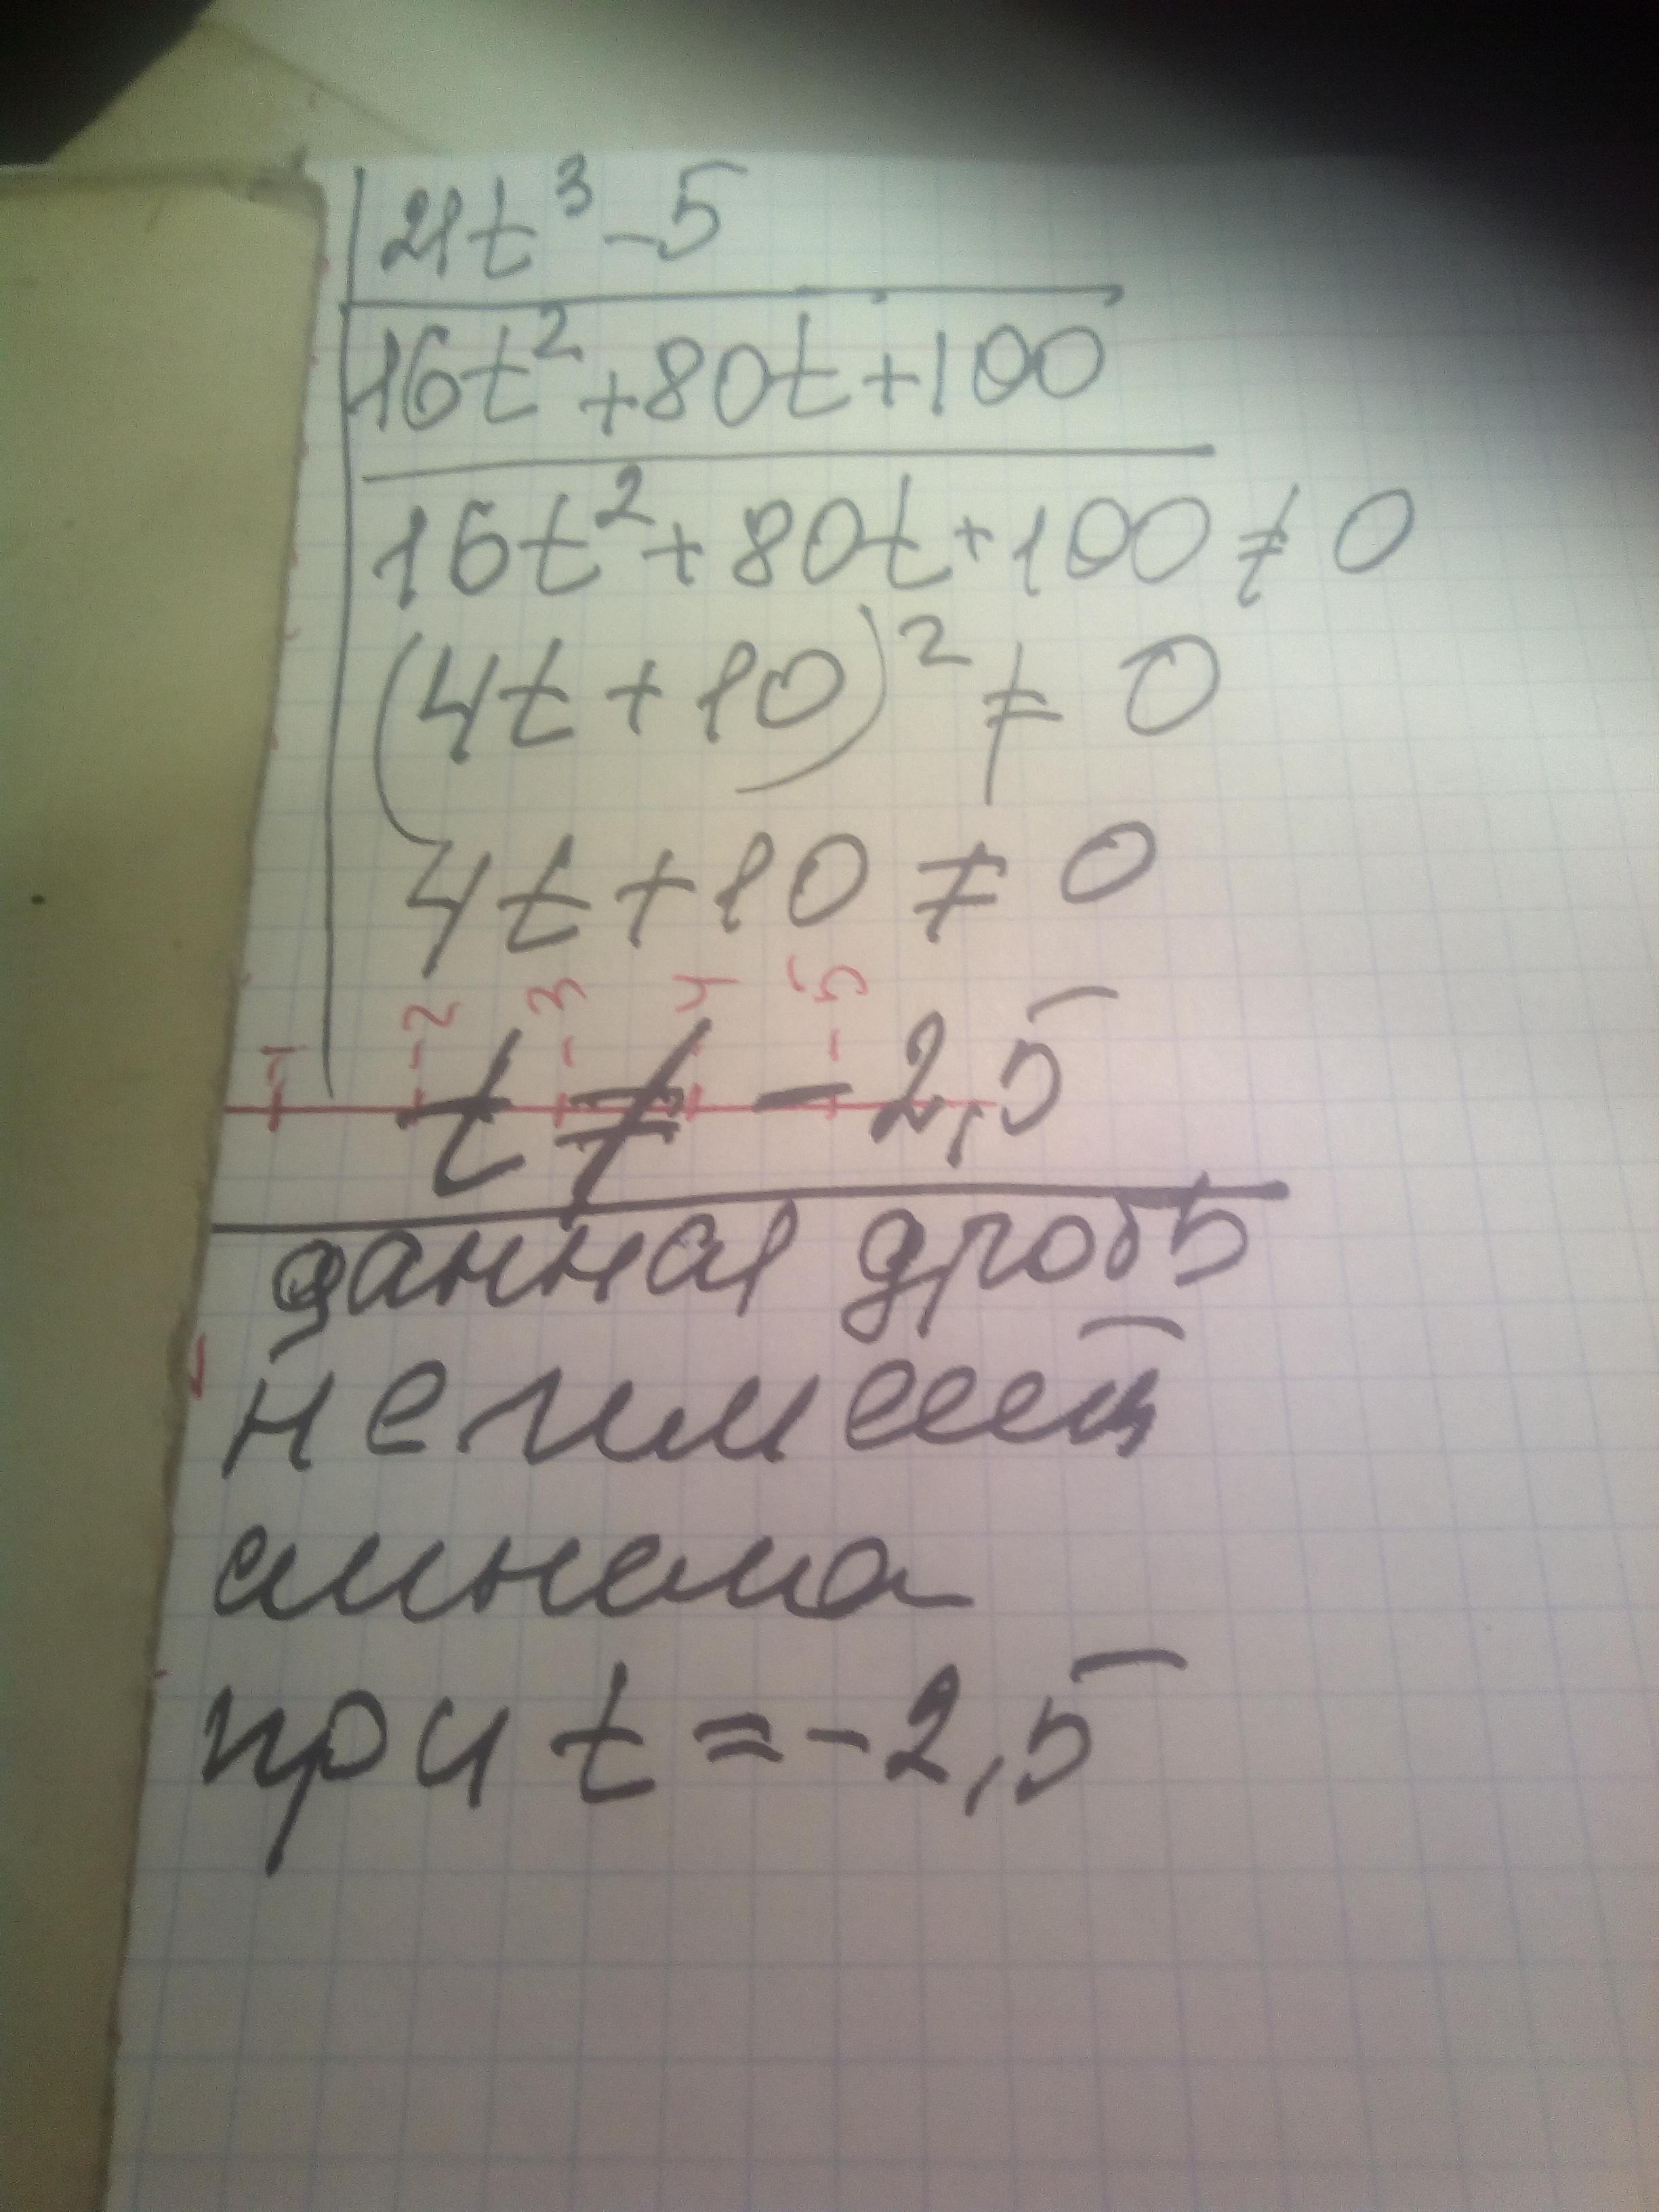 21t³-5
16t²+80t+100
16t²+80t+100≠0
(4t+10)²≠0
4t+10≠0
-1 -2 -3 -4 -5
t≠-2,5
данная дробь
не имеет
смысла
при t=-2,5